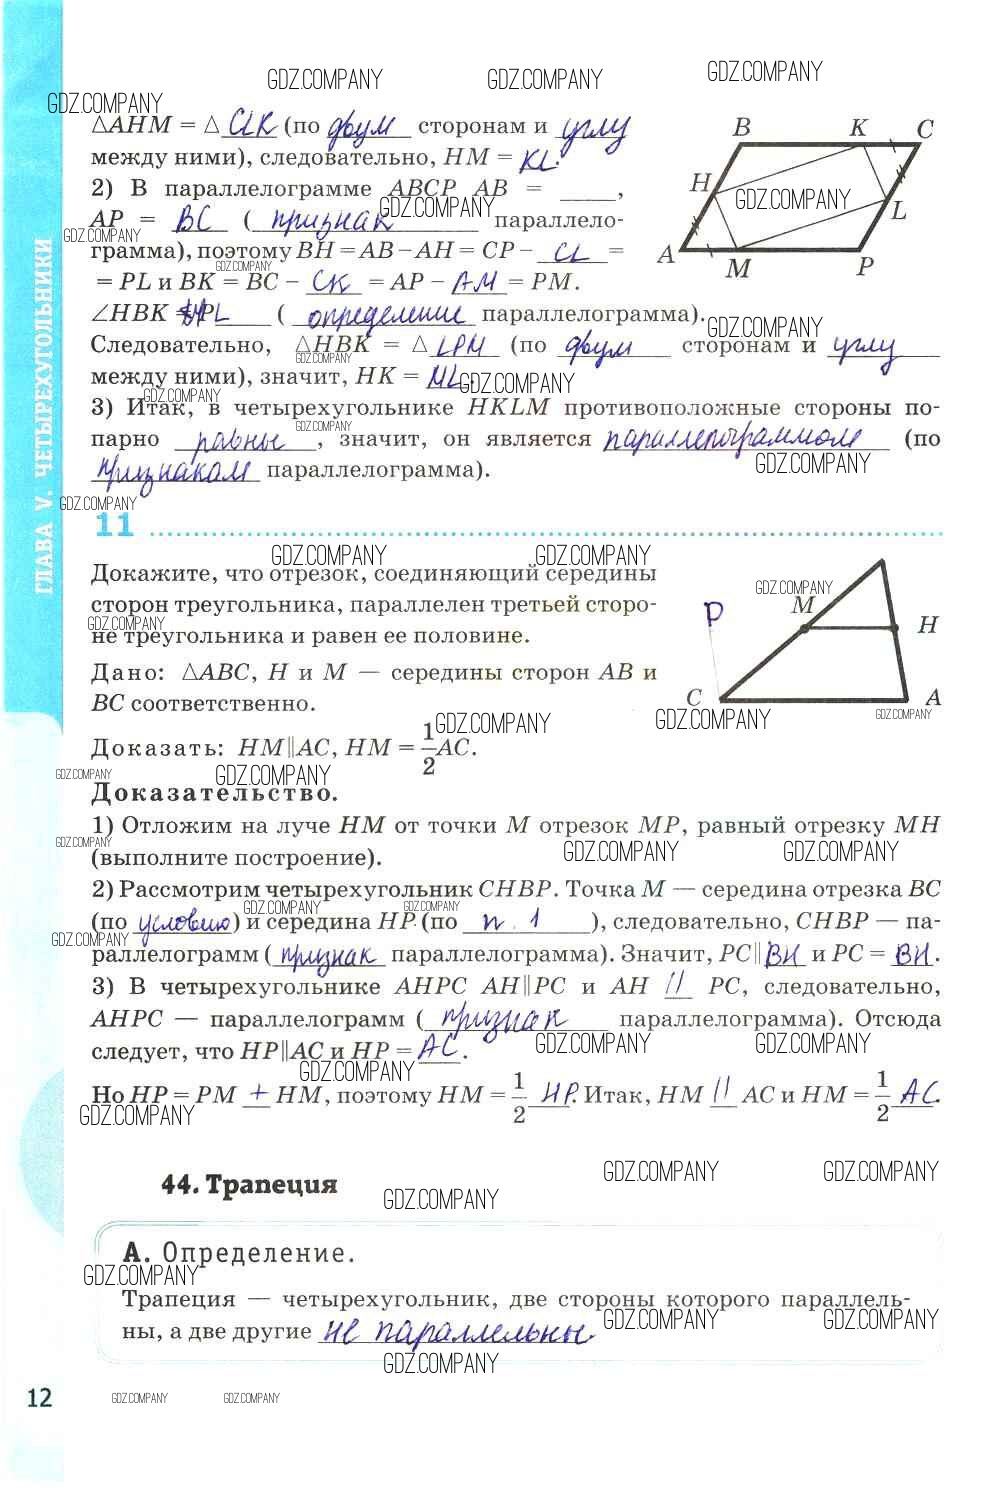 △AHM = △ CLK (по двум сторонам и углу
между ними), следовательно, HM = KL.
2) В параллелограмме ABCP AB = ____,
AP = BC (признак параллело-
грамма), поэтому BH = AB – AH = CP – CL =
= PL и BK = BC – CK = AP – AM = PM.
∠HBK = ∠ PL (определение параллелограмма).
Следовательно, △HBK = △ LPM (по двум сторонам и углу
между ними), значит, HK = ML.
3) Итак, в четырехугольнике HKLM противоположные стороны по-
парно равны, значит, он является параллелограммом (по
признакам параллелограмма).
B K C
H
L
A M P
11
Докажите, что отрезок, соединяющий середины
сторон треугольника, параллелен третьей сторо-
не треугольника и равен ее половине.
Дано: △ABC, H и M — середины сторон AB и
BC соответственно.
Доказать: HM ∥ AC, HM = 1/2 AC.
P M H
C A
Доказательство.
1) Отложим на луче HM от точки M отрезок MP, равный отрезку MH
(выполните построение).
2) Рассмотрим четырехугольник CHBP. Точка M — середина отрезка BC
(по условию) и середина HP (по п. 1), следовательно, CHBP — па-
раллелограмм (признак параллелограмма). Значит, PC ∥ BH и PC = BH.
3) В четырехугольнике AHPC AH ∥ PC и AH || PC, следовательно,
AHPC — параллелограмм (признак параллелограмма). Отсюда
следует, что HP ∥ AC и HP = AC.
Но HP = PM + HM, поэтому HM = 1/2 HP. Итак, HM || AC и HM = 1/2 AC.
44. Трапеция
А. Определение.
Трапеция — четырехугольник, две стороны которого параллель-
ны, а две другие не параллельны.
12
ГЛАВА V. ЧЕТЫРЕХУГОЛЬНИКИ
GDZ.COMPANY